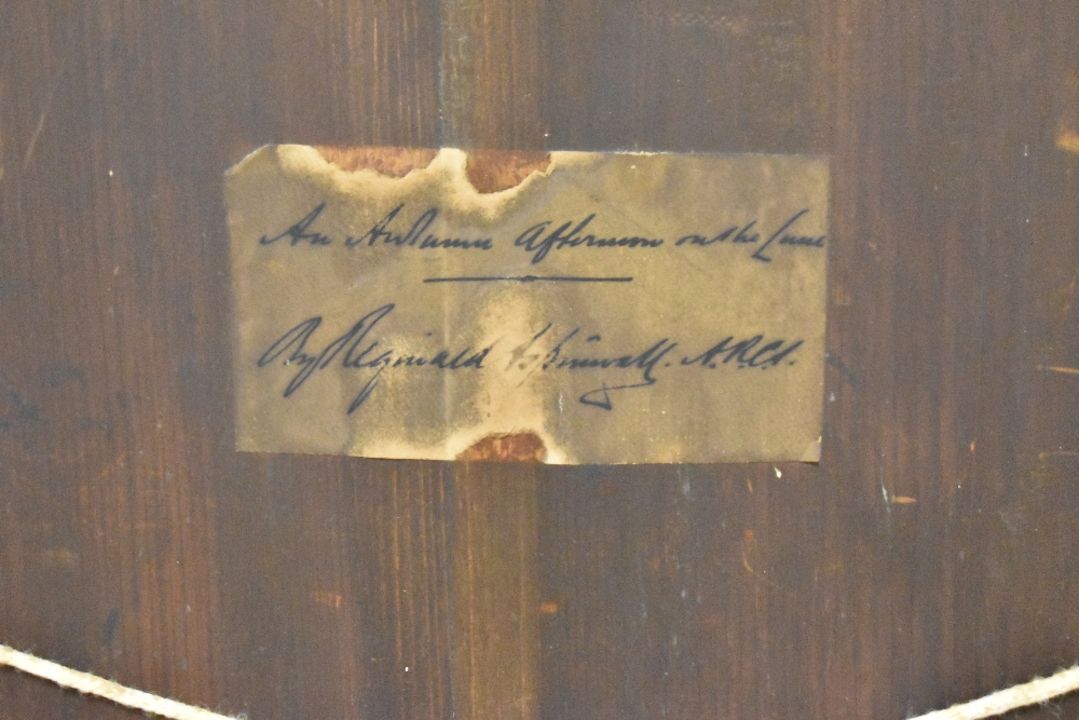 An Autumn Afternoon on the Lune
By Reginald Aspinwall. A.R.C.A.